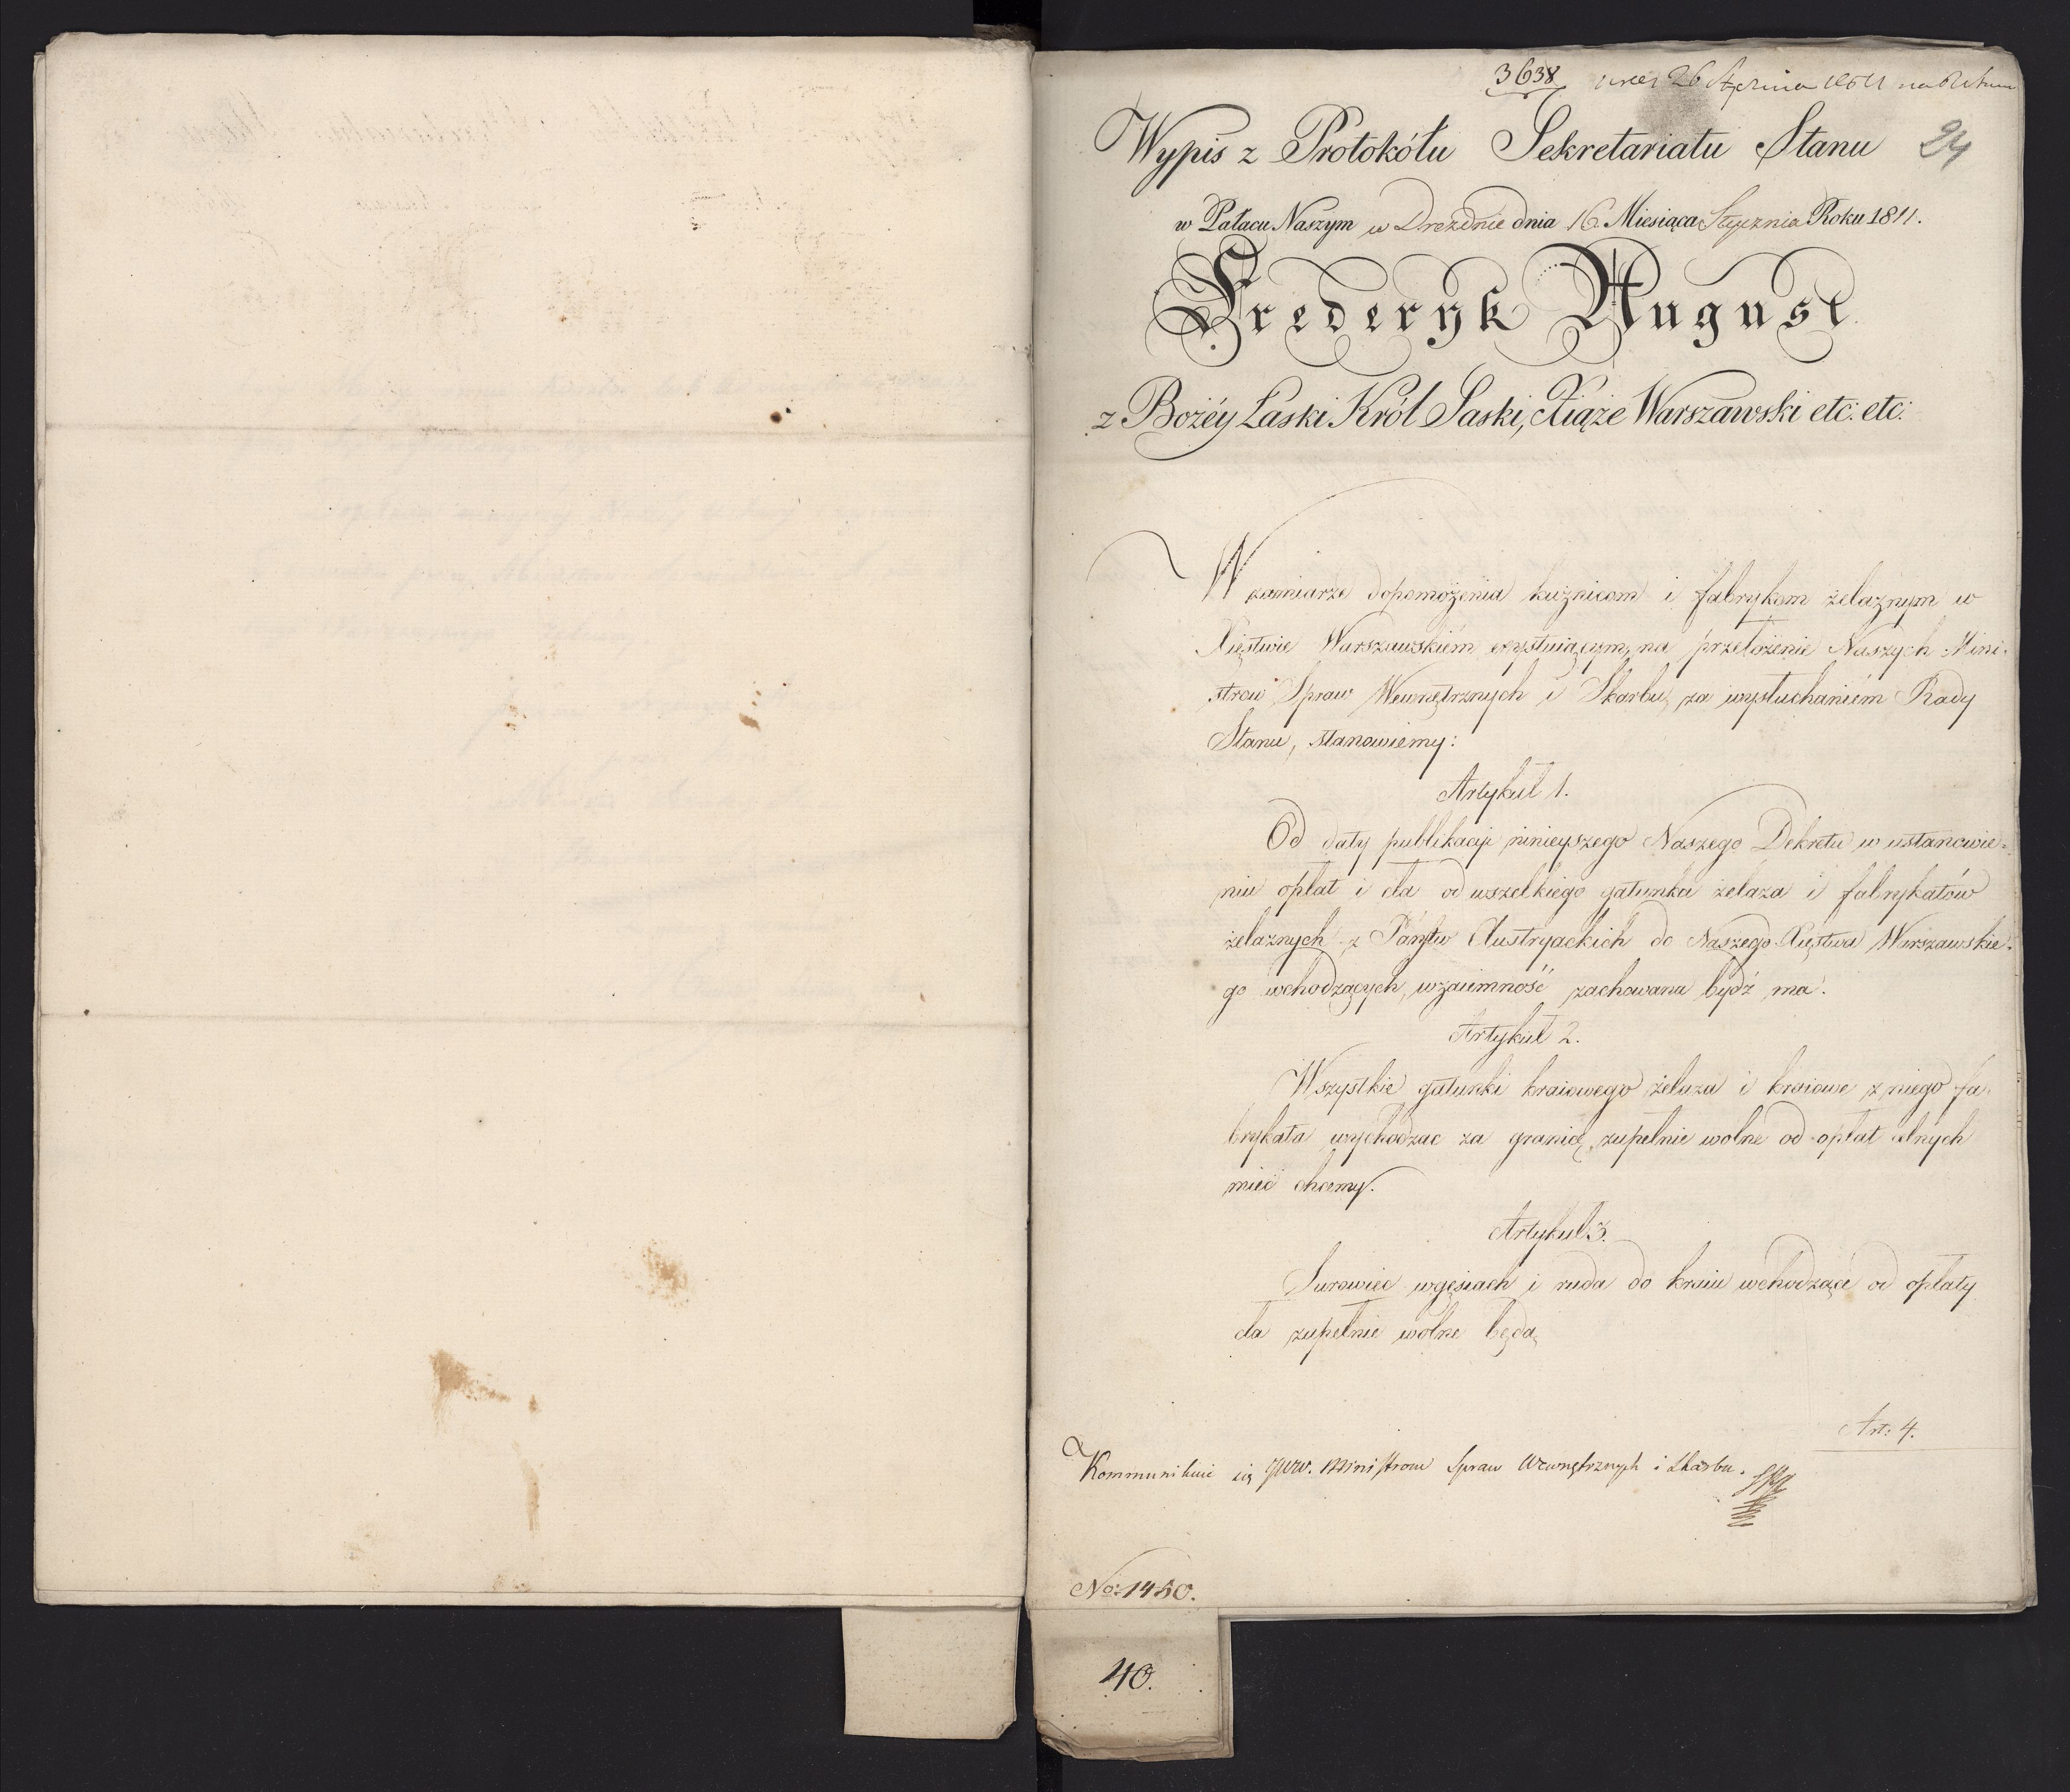 3638 26 Stycznia 1811
Wypis z Protokółu Sekretariatu Stanu 24
w Pałacu Naszym w Dreznie dnia 16 Miesiąca Stycznia Roku 1811.
Fryderyk August
z Bożéy Łaski Król Saski, Xiąże Warszawski etc: etc:
W zamiarze dopomożenia kuźnicom i fabrykom żelaznym w
Xięstwie Warszawskiém exystuiącym, na przełożenie Naszych Mini-
strow Spraw Wewnętrznych i Skarbu, za wysłuchaniém Rady
Stanu, stanowiemy:
Artykuł 1.
Od daty publikacyi ninieyszego Naszego Dekretu w ustanowie-
niu opłat i cła od wszelkiego gatunku żelaza i fabrykatów
żelaznych z Państw Austryackich do Naszego Xięstwa Warszawskie-
go wchodzących, wzaiemność zachowana bydź ma.
Artykuł 2.
Wszystkie gatunki kraiowego żelaza i kraiowe z niego fa-
brykata wychodząc za granicę, zupełnie wolne od opłat celnych
mieć chcemy.
Artykuł 3.
Surowiec w gęsiach i ruda do kraiu wchodzące od opłaty
cła zupełnie wolne będą.
Art: 4.
Kommunikuie się JWW. Ministrom Spraw Wewnętrznych i Skarbu.
No: 1450.
40.